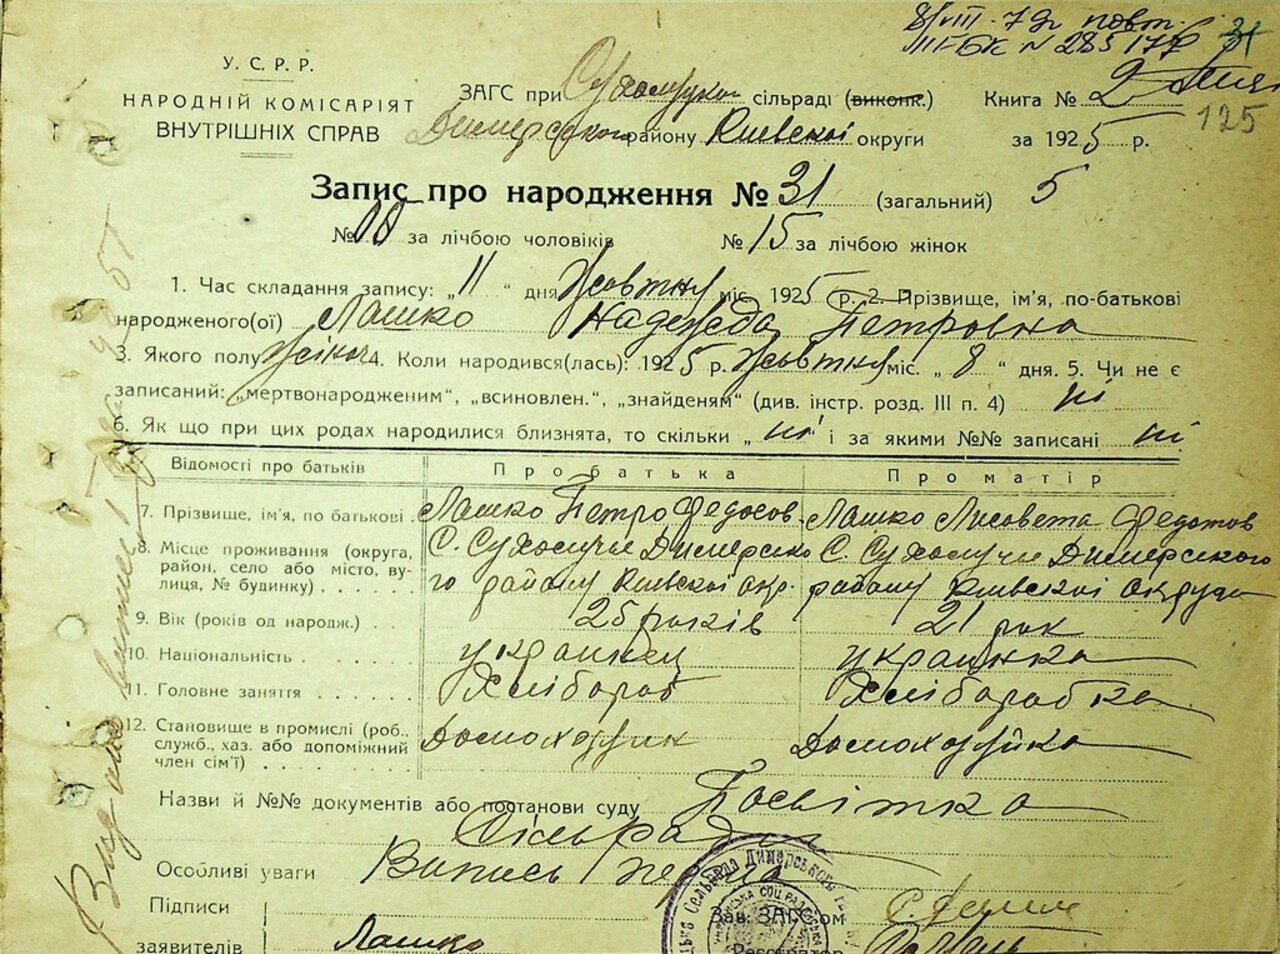 8/VIII-79р повт.
III-БК N 285177 31
У. С. Р. Р.
НАРОДНІЙ КОМІСАРІЯТ
ВНУТРІШНІХ СПРАВ
ЗАГС при сільраді (виконк.) Книга № 2
125
Димерського району Київскої округи за 1925 р.
Запис про народження № 31 (загальний) 5
№ за лічбою чоловіків № 15 за лічбою жінок
1. Час складання запису: „11“ дня Жовтня міс. 1925 р. 2. Прізвище, ім'я, по-батькові
народженого(ої) Лашко Надежда Петровна
3. Якого полу жіноч 4. Коли народився(лась): 1925 р. Жовтня міс. „8“ дня. 5. Чи не є
записаний: „мертвонародженим“, „всиновлен.“, „знайденям“ (див. інстр. розд. III п. 4) ні
6. Як що при цих родах народилися близнята, то скільки „ні“ і за якими №№ записані ні
Відомості про батьків Про батька Про матір
7. Прізвище, ім'я, по батькові . Лашко Петро Федосов. Лашко Лисовета Федотов
8. Місце проживання (округа, район, село або місто, вулиця, № будинку) . . . . . .
С. Сухолучье Димерсько С. Сухолучи Димерського
го району Київскої окр. району Київскої округи
9. Вік (років од народж.) . . 25 років 21 рок
10. Національність . . . . . . украинец украинка
11. Головне заняття . . . . . . Хлібороб Хлібаробка
12. Становище в промислі (роб., служб., хаз. або допоміжний член сім'ї) . . . . . . . .
Домохозяин Домохозяйка
Назви й №№ документів або постанови суду Посвітка
Сільради
Особливі уваги Випись перша
Підписи
заявителів Лашко
Зав. ЗАГС'ом
Реєстратор
Сельрада Димерського